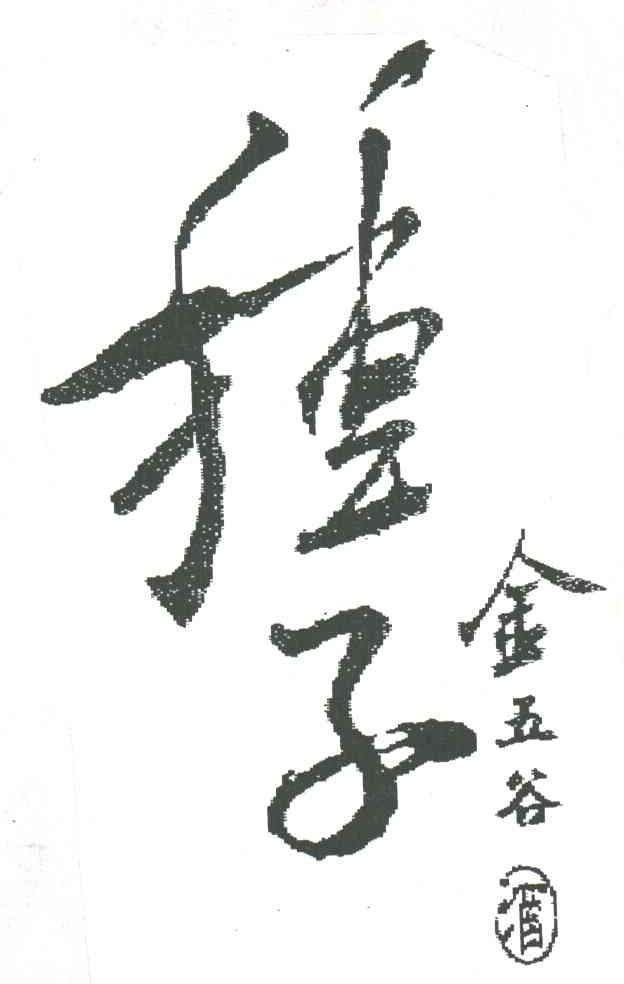 種子
金五谷
酒